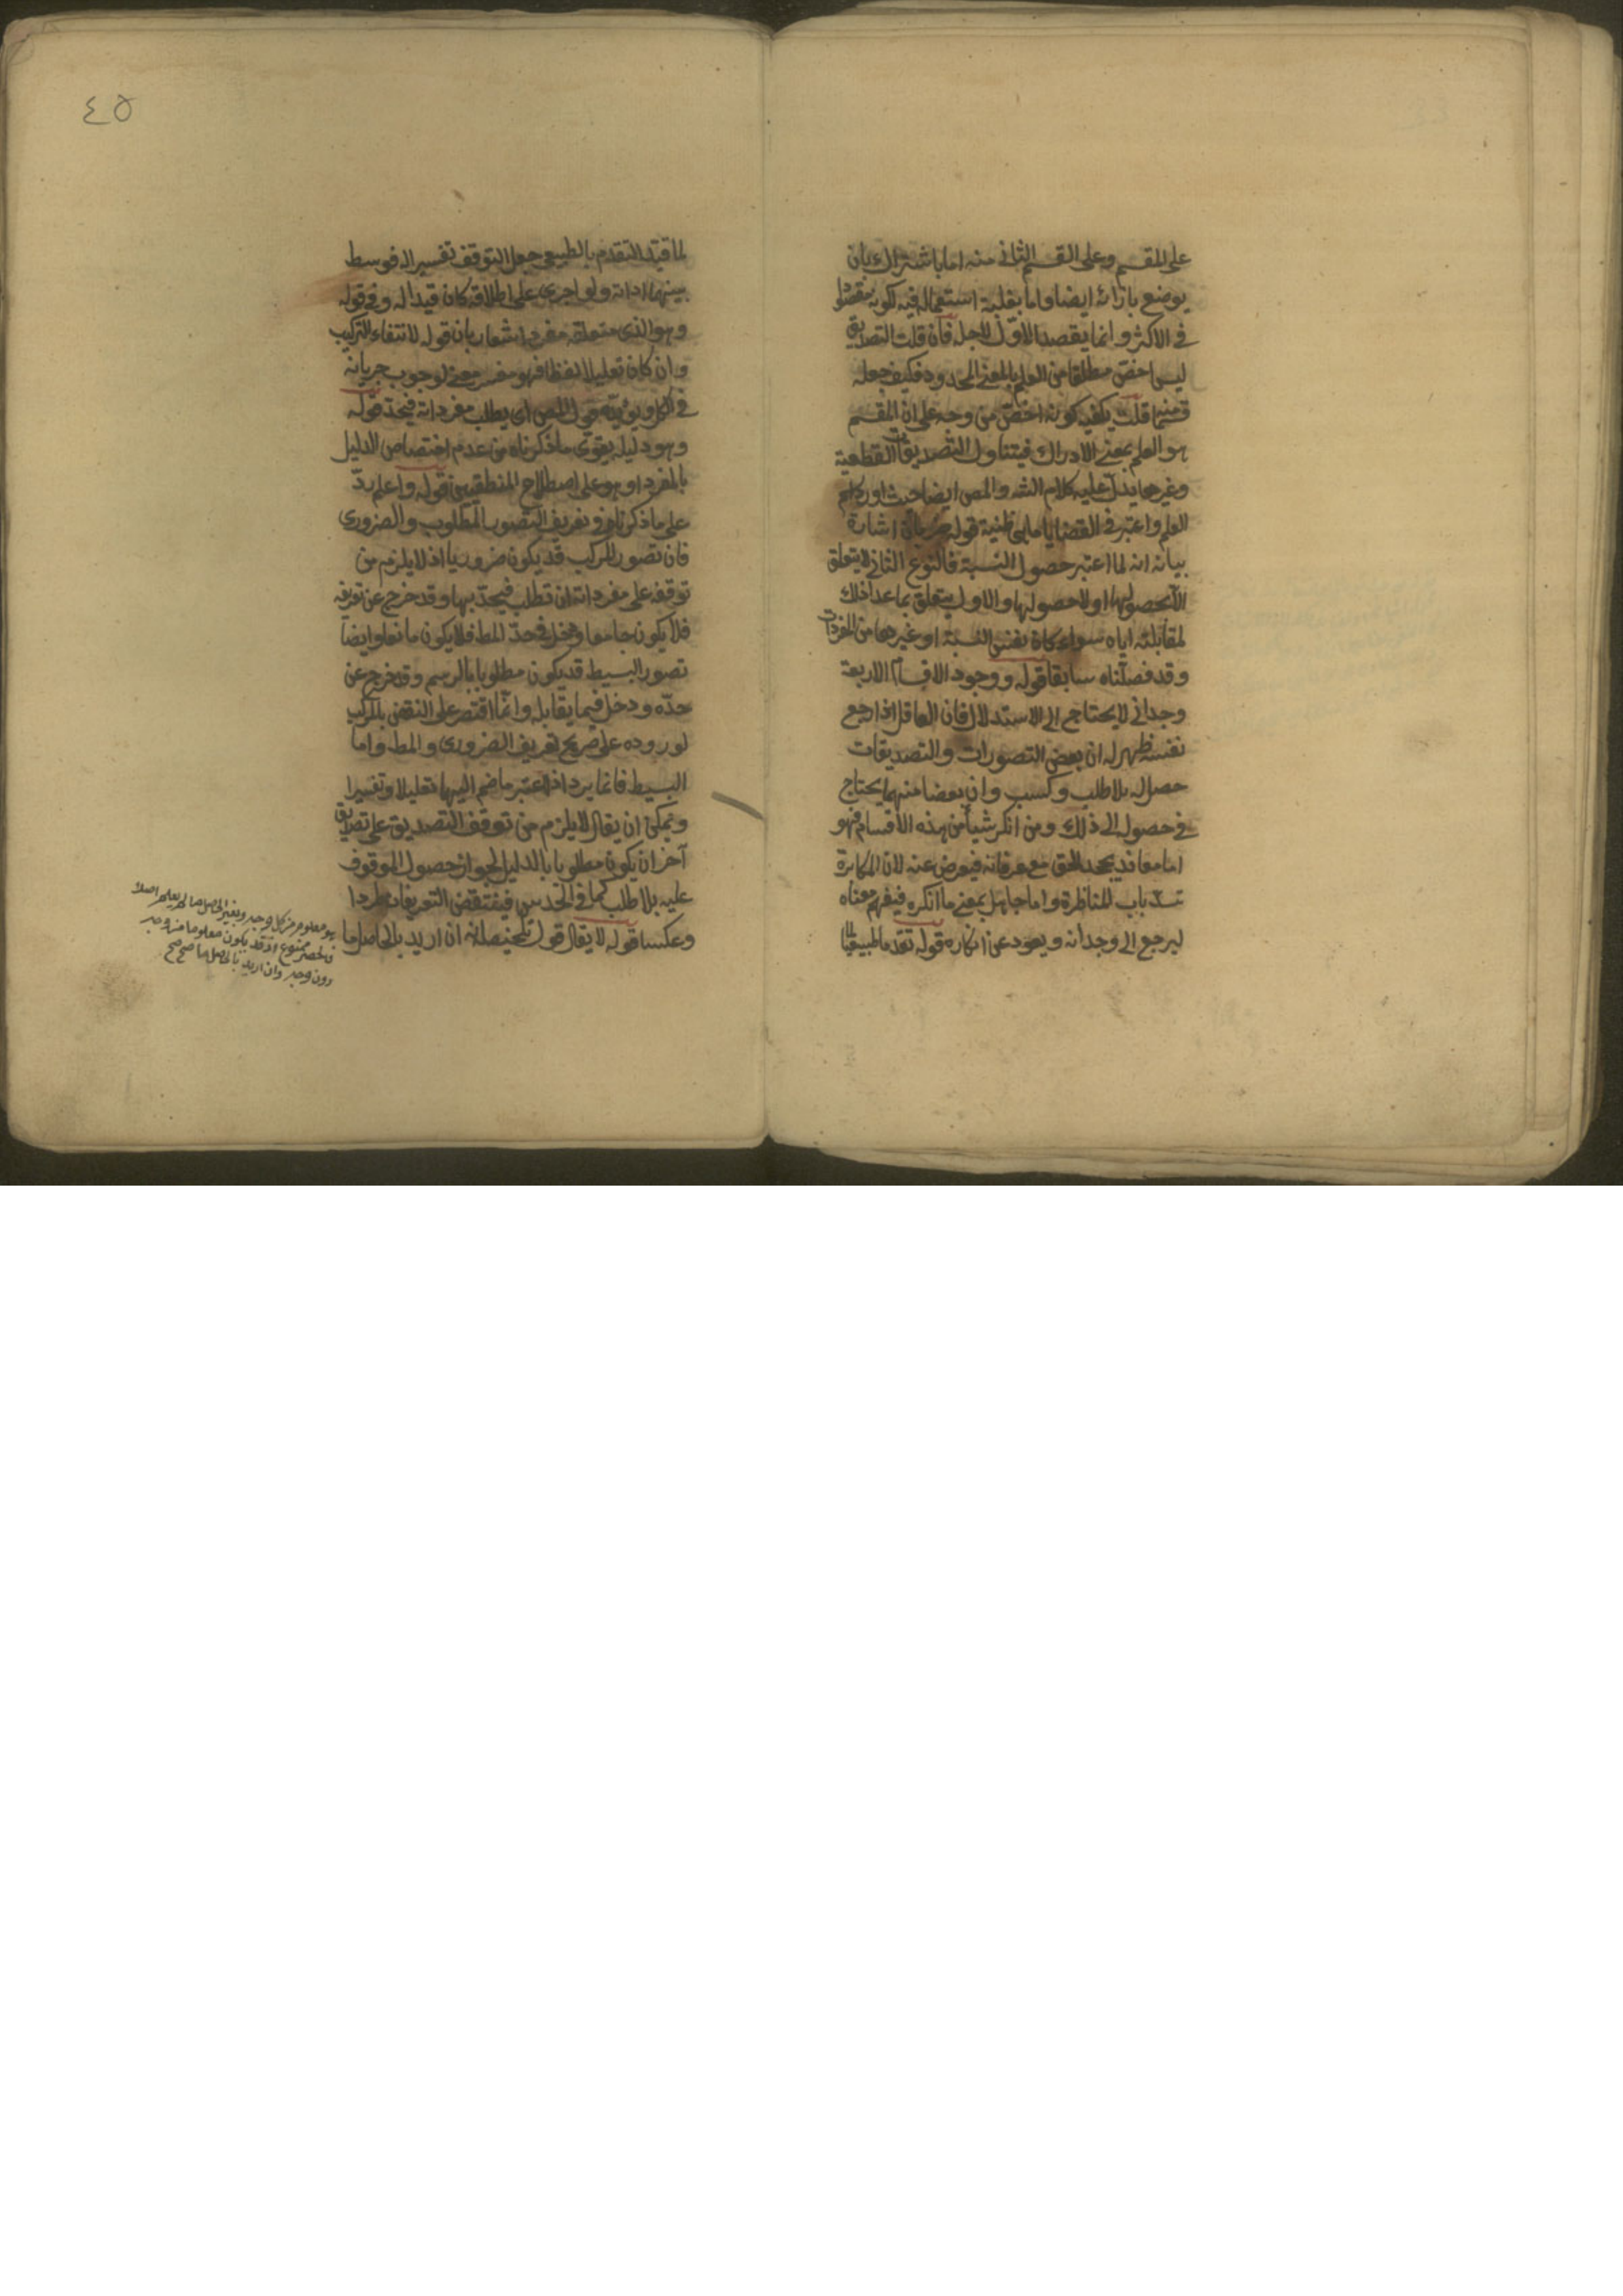 على المقسم وعلى القسم الثاني منه اما باشتراك بان
يوضع بازائه ايضا واما بغلبة استعماله فيه لكونه مقصودا
في الاكثر وانما يقصد الاول لاجله فان قلت التصديق
ليس اخص مطلقا من العلم بالمعنى المحدود فكيف جعله
قسما منه قلت يكفيه كونه اخص من وجه على ان المقسم
هو العلم بمعنى الادراك فيتناول التصديقات القطعية
وغيرها يدل عليه كلام الشه والمص ايضا حيث اورد
العلم واعتبر في القضايا ما هي ظنية قوله اشارة
بيانه انه لما اعتبر حصول النسبة فالنوع الثاني لا يتعلق
الا بحصولها او لا حصولها والاول يتعلق بما عدا ذلك
لمقابلته اياه سواء كان نفس النسبة او غيرها من المفردات
وقد فصلناه سابقا قوله ووجود الاقسام الاربعة
وجداني لا يحتاج الى الاستدلال فان العاقل اذا رجع
نفسه ظهر له ان بعض التصورات والتصديقات
حصل له بلا طلب وكسب وان بعضا منهما يحتاج
في حصوله الى ذلك ومن انكر شيأ من هذه الاقسام فهو
اما معاند يجحد الحق مع عرفانه فيعرض عنه لان المكابرة
تسد باب المناظرة واما جاهل بمعنى ما انكره فيفهم معناه
ليرجع الى وجدانه ويعود عن انكاره قوله تقدما طبيعيا
٤٥
لما قيد التقدم بالطبيعي جعل التوقف تفسيرا له فوسط
بينهما اداته ولو اجرى على اطلاقه كان قيدا له وفي قوله
وهو الذي متعلقه مفرد اشعار بان قوله لانتفاء التركيب
وان كان تعليلا لفظا فهو مفسر معنى لوجوب جريانه
في الكل ويؤيده قول المص اى يطلب مفرداته فيحد قوله
وهو دليله يقوى ما ذكرناه من عدم اختصاص الدليل
بالمفرد او هو على اصطلاح المنطقيين قوله واعلم رد
على ما ذكرناه في تعريف التصور المطلوب والضرورى
فان تصور المركب قد يكون ضروريا اذ لا يلزم من
توقفه على مفرداته ان تطلب فيحد بها وقد خرج عن تعريفه
فلا يكون جامعا ودخل في حد المط فلا يكون مانعا وايضا
تصور البسيط قد يكون مطلوبا بالرسم وقد خرج عن
حده ودخل فيما يقابله وانما اقتصر على النقض بالمركب
لوروده على صريح تعريف الضرورى والمط واما
البسيط فانما يرد اذا اعتبر ما ضم اليهما تعليلا وتفسيرا
ويمكن ان يقال لا يلزم من توقف التصديق على تصديق
آخر ان يكون مطلوبا بالدليل لجواز حصول الموقوف
عليه بلا طلب كما في الحدس فينتقض التعريفان طردا
وعكسا قوله لا يقال قول تلخيصه انه ان اريد بالحاصل ما
هو معلوم من كل وجه وبغير الحاصل ما لم يعلم اصلا
فالحصر ممنوع اذ قد يكون معلوما من وجه
دون وجه وان اريد بالحاصل ما صح صح